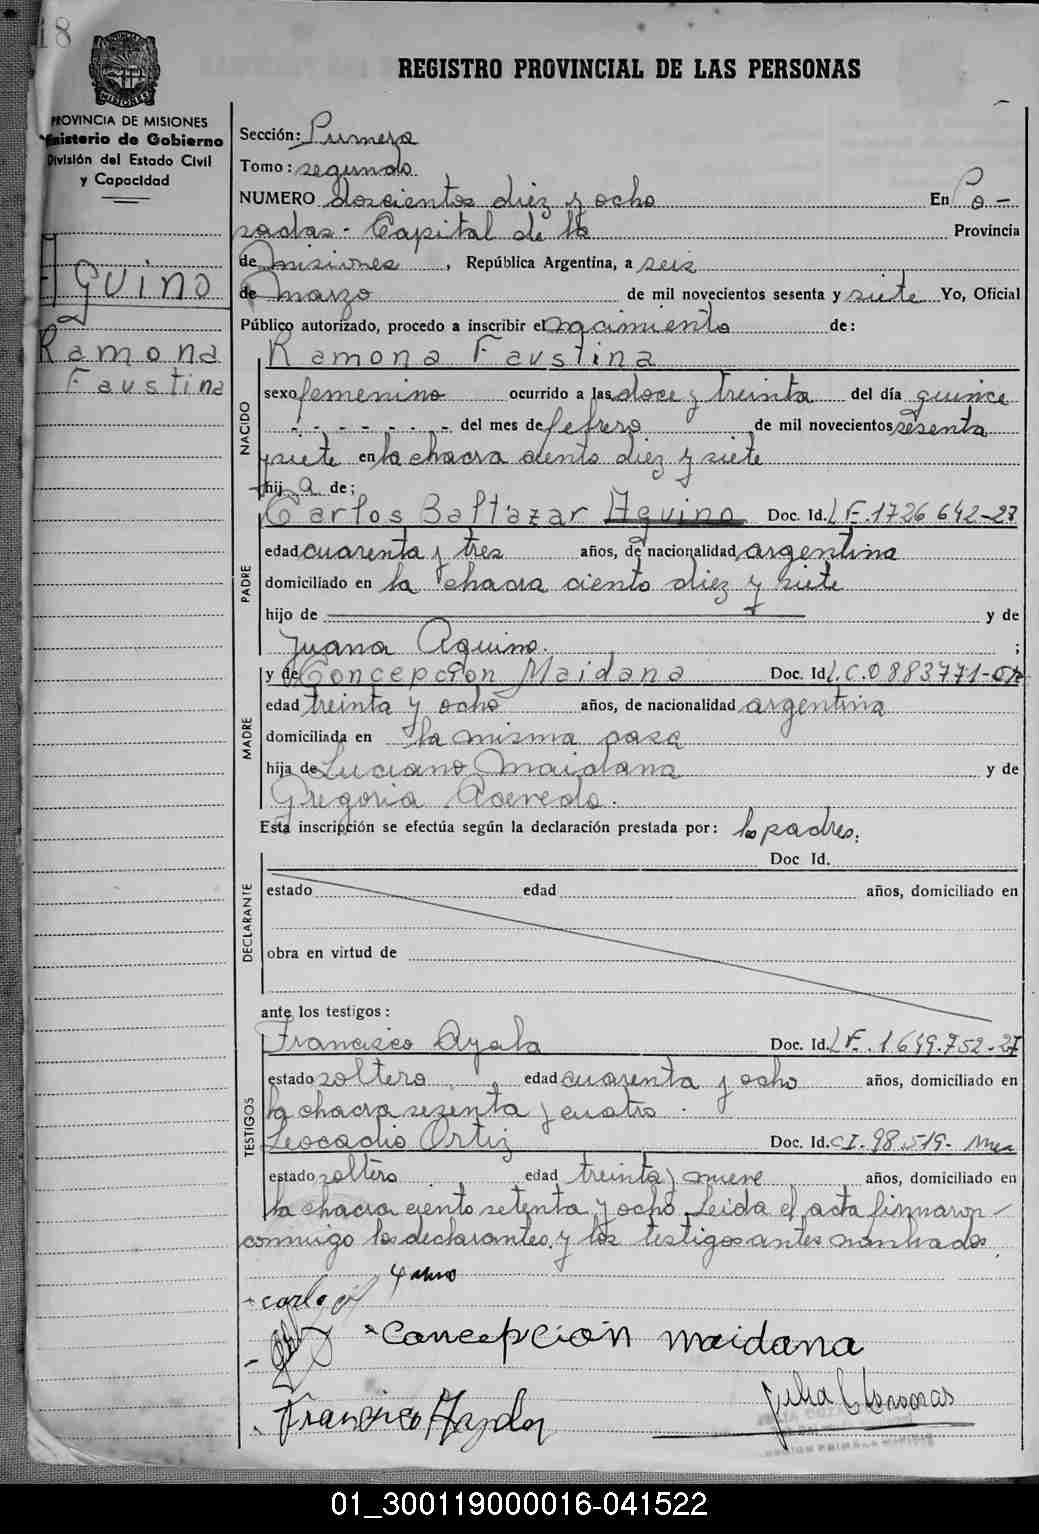 18
REGISTRO PROVINCIAL DE LAS PERSONAS
PROVINCIA DE MISIONES
Ministerio de Gobierno
División del Estado Civil
y Capacidad
Aquino
Ramona
Faustina
Sección: Primera
Tomo: segundo.
NUMERO doscientos diez y ocho En Po-
sadas - Capital de la Provincia
de Misiones, República Argentina, a seis
de marzo de mil novecientos sesenta y siete Yo, Oficial
Público autorizado, procedo a inscribir el nacimiento de:
NACIDO
Ramona Faustina
sexo femenino ocurrido a las doce y treinta del día quince
- - - - - - - del mes de febrero de mil novecientos sesenta
y siete en la chacra ciento diez y siete
hija de;
PADRE
Carlos Baltazar Aquino Doc. Id. LE. 1726642-27
edad cuarenta y tres años, de nacionalidad argentina
domiciliado en la chacra ciento diez y siete
hijo de y de
Juana Aquino. ;
MADRE
y de Concepción Maidana Doc. Id. L.C.0883771-
edad treinta y ocho años, de nacionalidad argentina
domiciliada en la misma casa
hija de Luciano Maidana y de
Gregoria Acevedo.
Esta inscripción se efectúa según la declaración prestada por: los padres.
DECLARANTE
Doc Id.
estado edad años, domiciliado en
obra en virtud de
ante los testigos:
TESTIGOS
Francisco Ayala Doc. Id. LE. 1649.752-27
estado soltero, edad cuarenta y ocho años, domiciliado en
la chacra sesenta y cuatro.
Leocadio Ortiz Doc. Id. CI. 98.519-
estado soltero edad treinta y nueve años, domiciliado en
la chacra ciento setenta y ocho. Leida el acta firmaron
conmigo los declarantes y los testigos antes nombrados.
Concepción maidana
Francisco
01_300119000016-041522